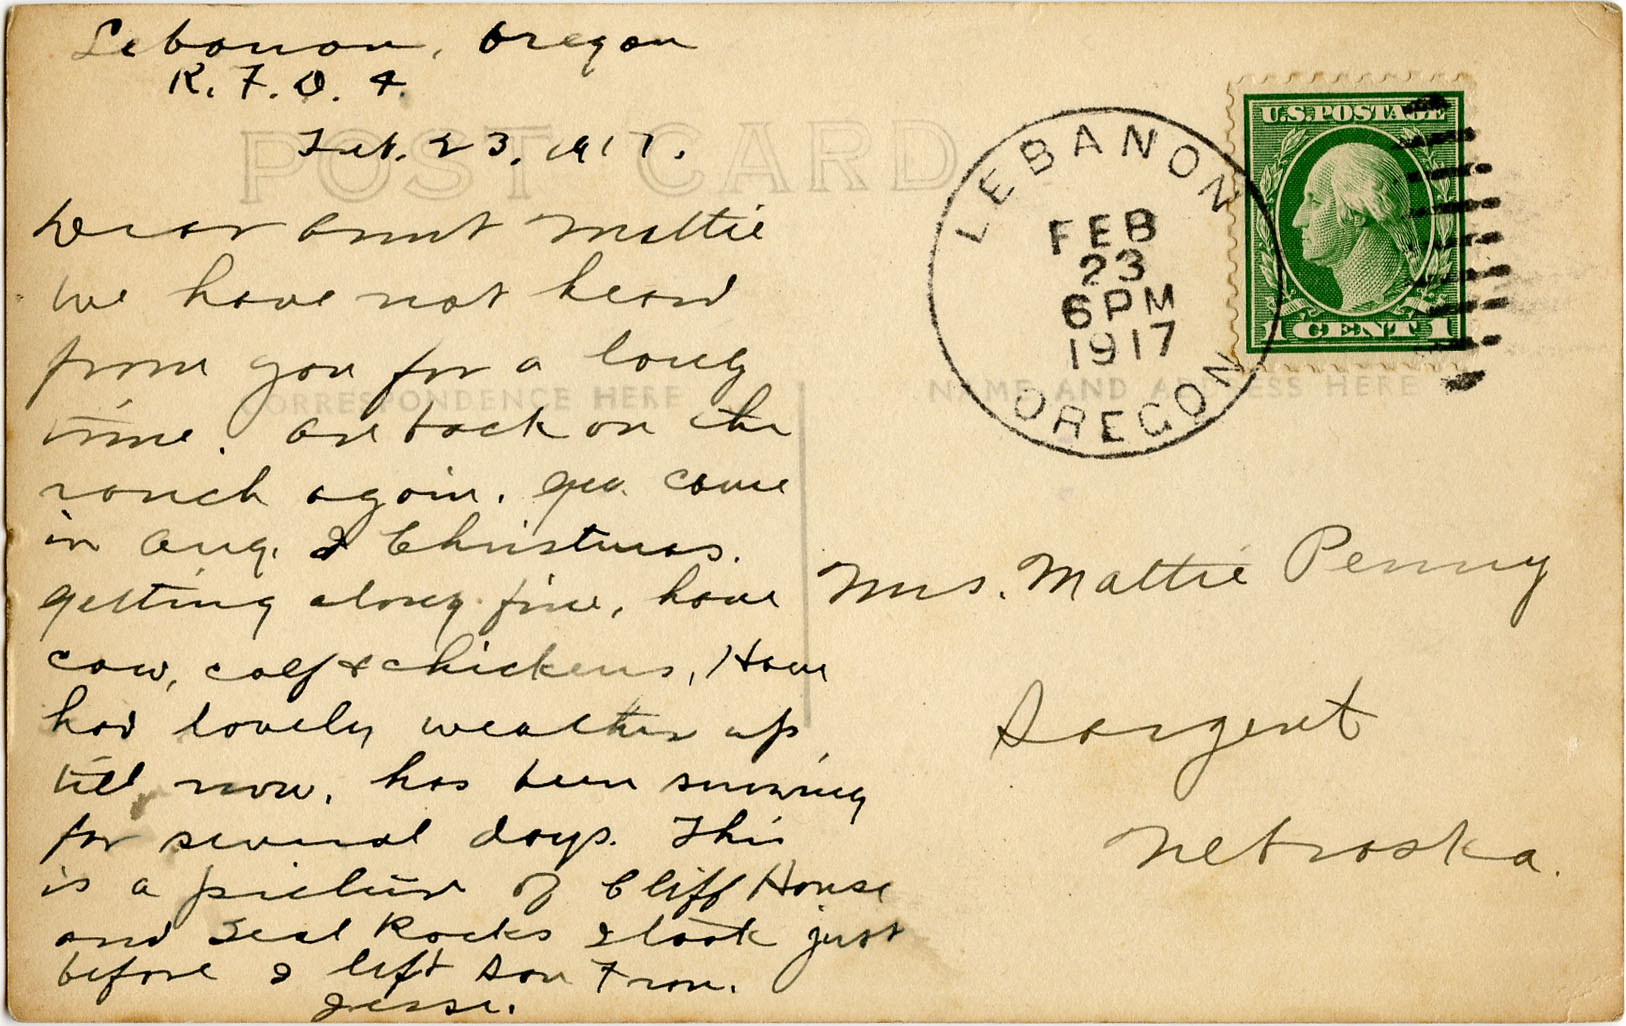 Lebanon, Oregon
R.F.D. 4.
Feb. 23, 1917.
POST CARD
Dear Aunt Mattie
We have not heard
from you for a long
time. Are back on the
ranch again. Geo. came
in Aug. I Christmas.
getting along fine, have
cow, calf & chickens, Have
had lovely weather up
till now, has been snowing
for several days. This
is a picture of Cliff House
and Seal Rocks I took just
before I left San Fran.
Jesse.
CORRESPONDENCE HERE
NAME AND ADDRESS HERE
LEBANON
FEB
23
6 PM
1917
OREGON
U.S. POSTAGE
1 CENT 1
Mrs. Mattie Penny
Sargent
Nebraska.